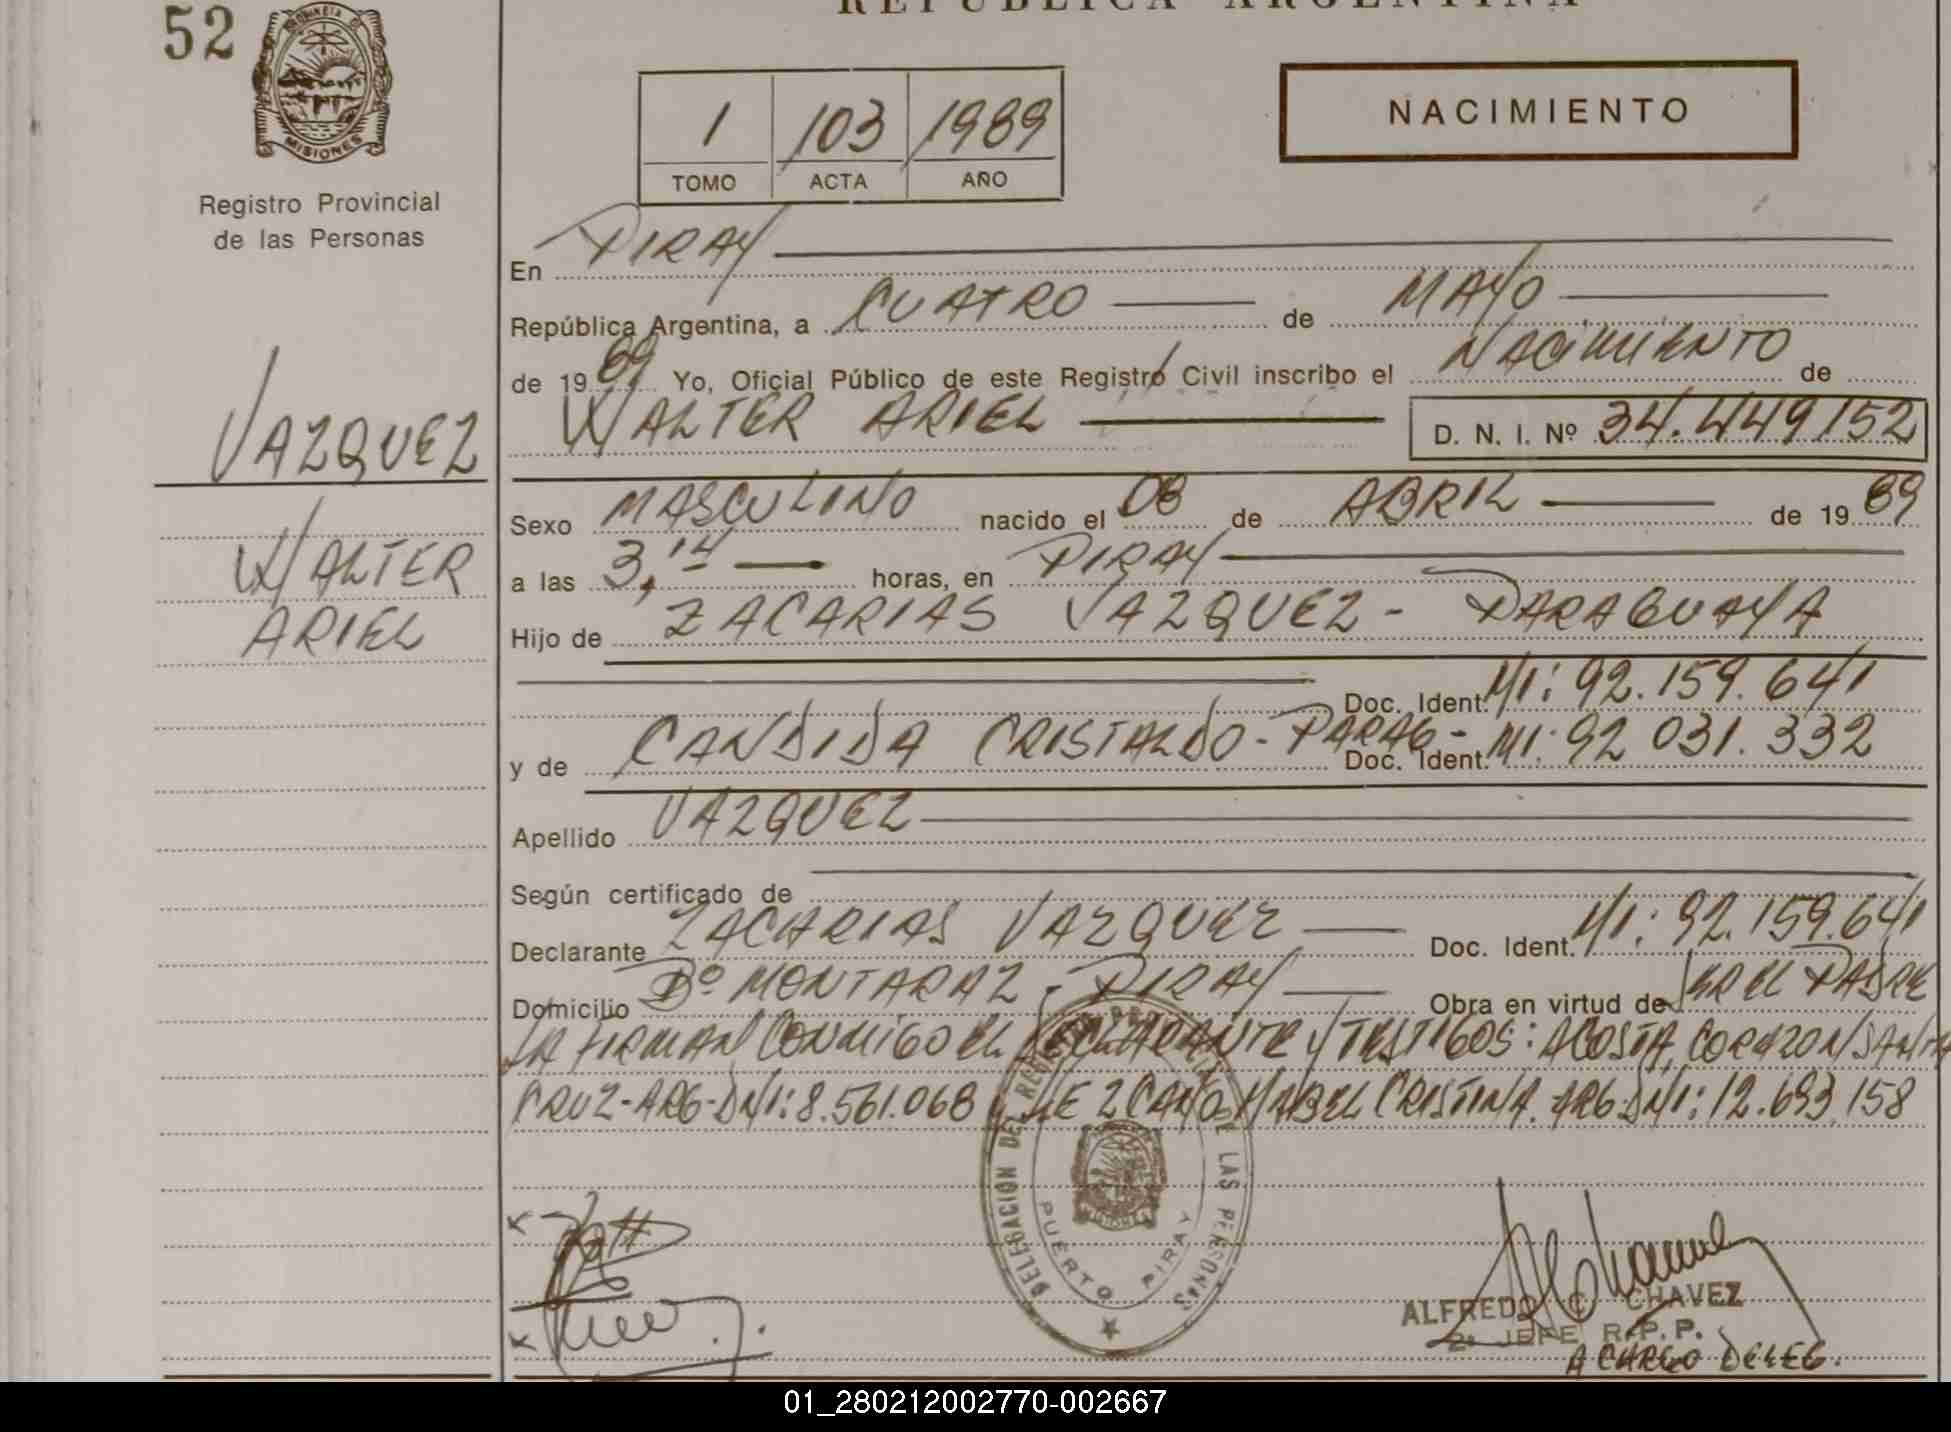 52
REPUBLICA ARGENTINA
PROVINCIA DE MISIONES
Registro Provincial
de las Personas
VAZQUEZ
WALTER
ARIEL
1 103 1989
TOMO ACTA AÑO
NACIMIENTO
En PIRAY
República Argentina, a CUATRO de MAYO
de 1989 Yo, Oficial Público de este Registro Civil inscribo el NACIMIENTO de
WALTER ARIEL D. N. I. Nº 34.449152
Sexo MASCULINO nacido el 08 de ABRIL de 1989
a las 3,14 horas, en PIRAY
Hijo de ZACARIAS VAZQUEZ - PARAGUAYA
Doc. Ident. MI: 92.159.641
y de CANDIDA CRISTALDO - PARAG - Doc. Ident. MI: 92 031.332
Apellido VAZQUEZ
Según certificado de
Declarante ZACARIAS VAZQUEZ Doc. Ident. MI: 92.159.641
Domicilio Bº MONTARAZ - PIRAY Obra en virtud de SER EL PADRE
LA FIRMAN CONMIGO EL DECLARANTE Y TESTIGOS: ACOSTA, CORAZON SANTA
CRUZ-ARG-DNI: 8.561.068 Y LEZCANO, MABEL CRISTINA. ARG. DNI: 12.693.158
DELEGACION DEL REGISTRO DE LAS PERSONAS
MISIONES
PUERTO PIRAY
ALFREDO C. CHAVEZ
2º JEFE R.P.P.
A CARGO DELEG.
01_280212002770-002667